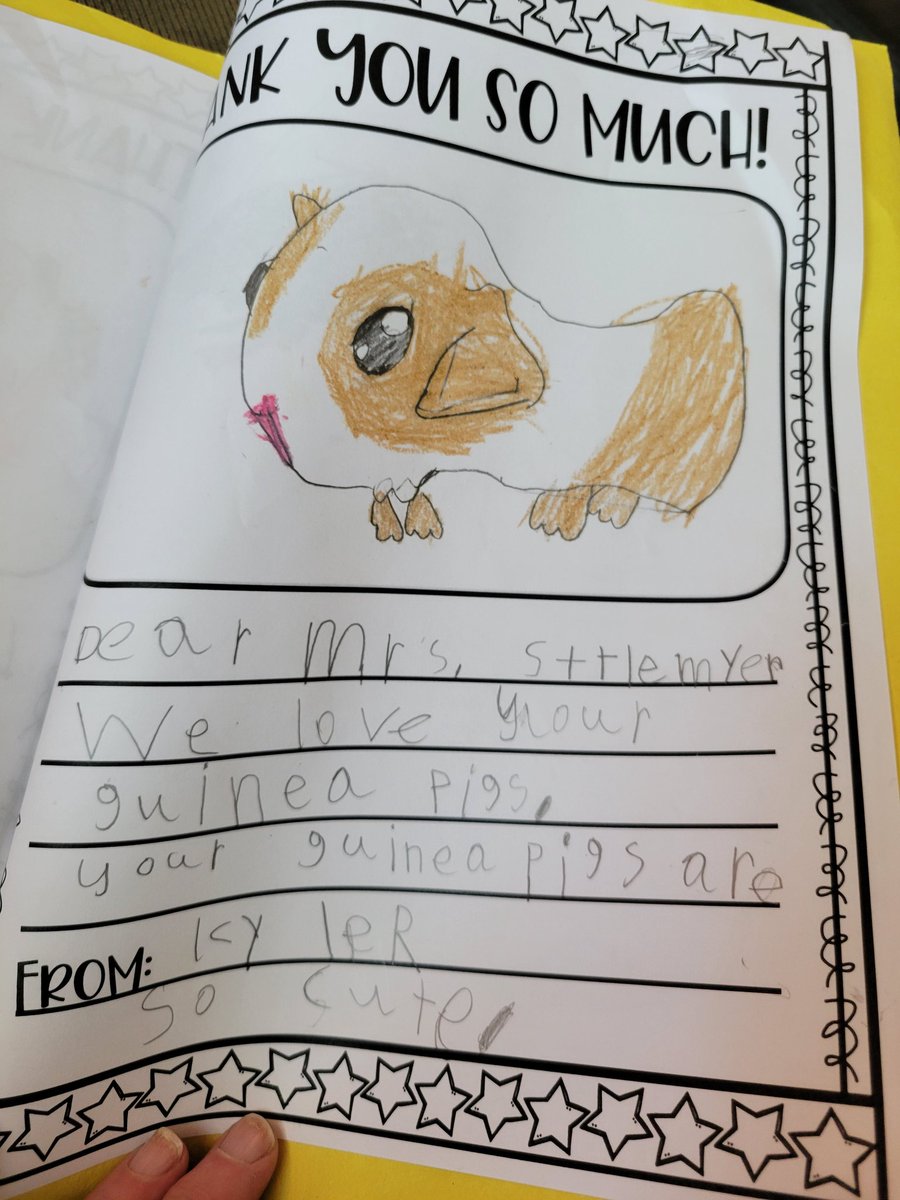 ANK YOU SO MUCH!
Dear Mrs, sttlemyer
We love your
guinea pigs,
your guinea pigs are
FROM: KyleR
so cute,